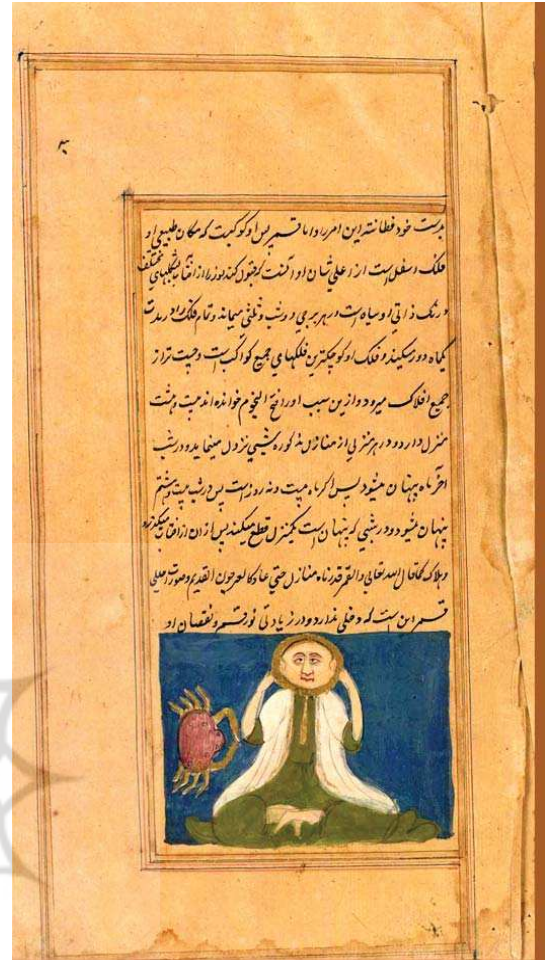 بدست خود فطانته این امر را و اما قمر پس او کوکبیت که مکان طبیعی او
فلک اسفل است از اعلی شان او آنست که قبول کند نور را از افتاب بشکلهای مختلف
و رنگ ذاتی او سیاه است و در هر برجی دو شب و ثلثی میماند و تمام فلک را در مدت
یکماه دور میکند و فلک او کوچکترین فلکهای جمیع کواکب است و
جمیع افلاک میرود و ازین سبب او را فیج النجوم خوانده اند بیست و هشت
منزل دارد و در هر منزلی از منازل مذکوره شبی نزول مینماید و در شب
اخر ماه پنهان میشود پس اگر ماه بیست و نه روز است پس در شب بیست و هشتم
پنهان میشود و در شبی که پنهان است یکمنزل قطع میکند پس از ان از افتاب میگذرد
و هلاک کما قال الله تعالی والقمر قدرناه منازل حتی عاد کالعرجون القدیم و صورت اصلی
قمر این است که دخلی ندارد و در زیادتی نور قمر و نقصان او